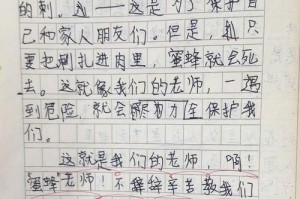 的刺。这——这是为了保护自
己和家人朋友们。但是，只
要把刺扎进肉里，蜜蜂就会死
去。这就像我们的老师，一遇
到危险，就会尽力保护我
们。
这就是我们的老师，啊！
"蜜蜂"老师！不辞辛苦教我们